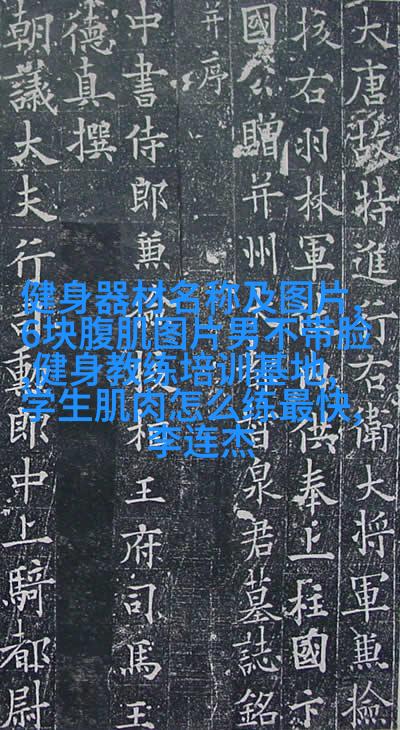 大唐故特進行右衛大將軍兼撿
挍右羽林軍供奉上柱國卞
國公贈并州泉君墓誌銘
并序
中書侍郎兼撿挍相王府司馬王
德真撰
朝議大夫行司勳郎中上騎都尉
健身器材名称及图片,
6块腹肌图片男不带脸
,健身教练培训基地,
学生肌肉怎么练最快,
李连杰